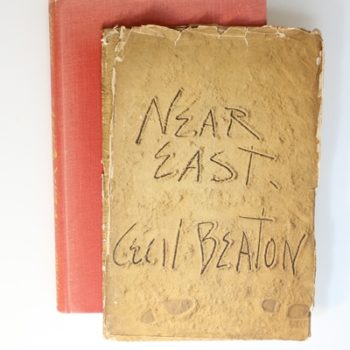 NEAR
EAST.
CECIl BEATON